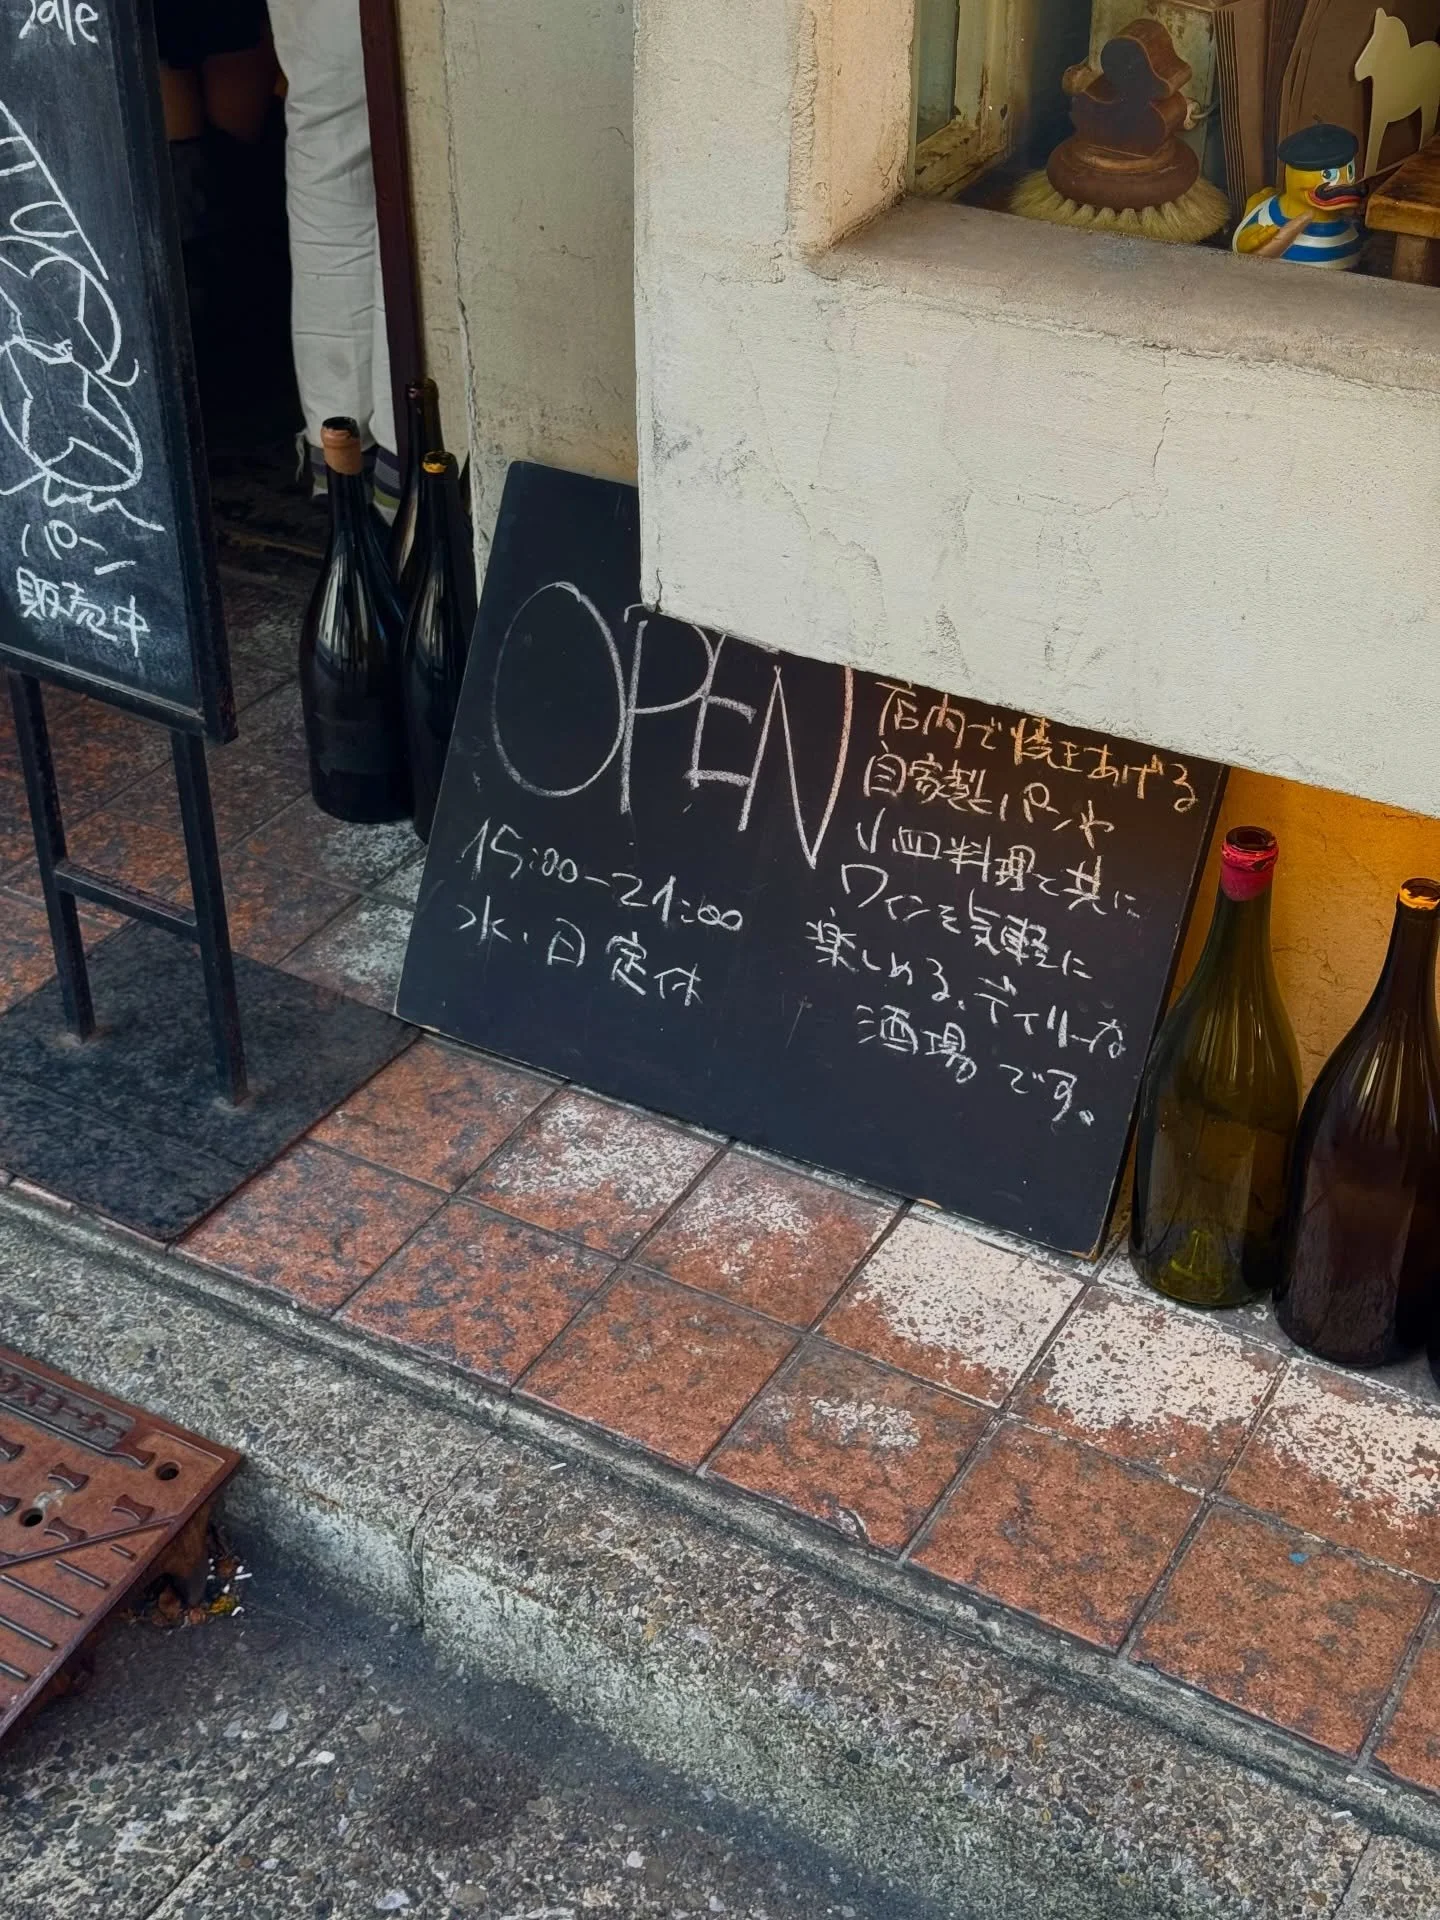 Sale
パン
販売中
OPEN
15:00-21:00
水・日 定休
店内で焼きあげる
自家製パンや
小皿料理と共に
ワインを気軽に
楽しめる、デイリーな
酒場です。